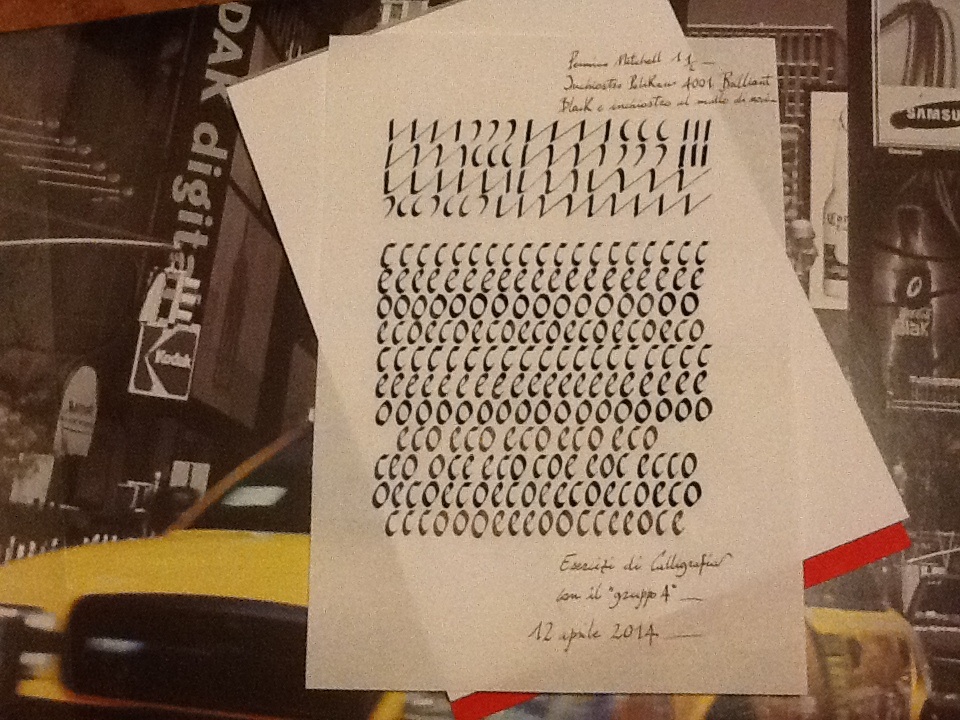 DAK digital
Kodak
SAMSU
Pennino Mitchell 1 ½
Inchiostro Pelikan 4001 Brilliant
Black e inchiostro al mallo di noce
ccccccccccccccccccc
eeeeeeeeeeeeeeeeeee
ooooooooooooooooo
ecoecoecoecoecoecoeco
ccccccccccccccccccc
eeeeeeeeeeeeeeeeee
ooooooooooooooooo
eco eco eco eco eco
ceo oce eco coe eoc ecco
oecoecoecoeecoecoeco
cccoooeeeoocceeoce
Esercizi di Calligrafia
con il "gruppo 4"
12 aprile 2014